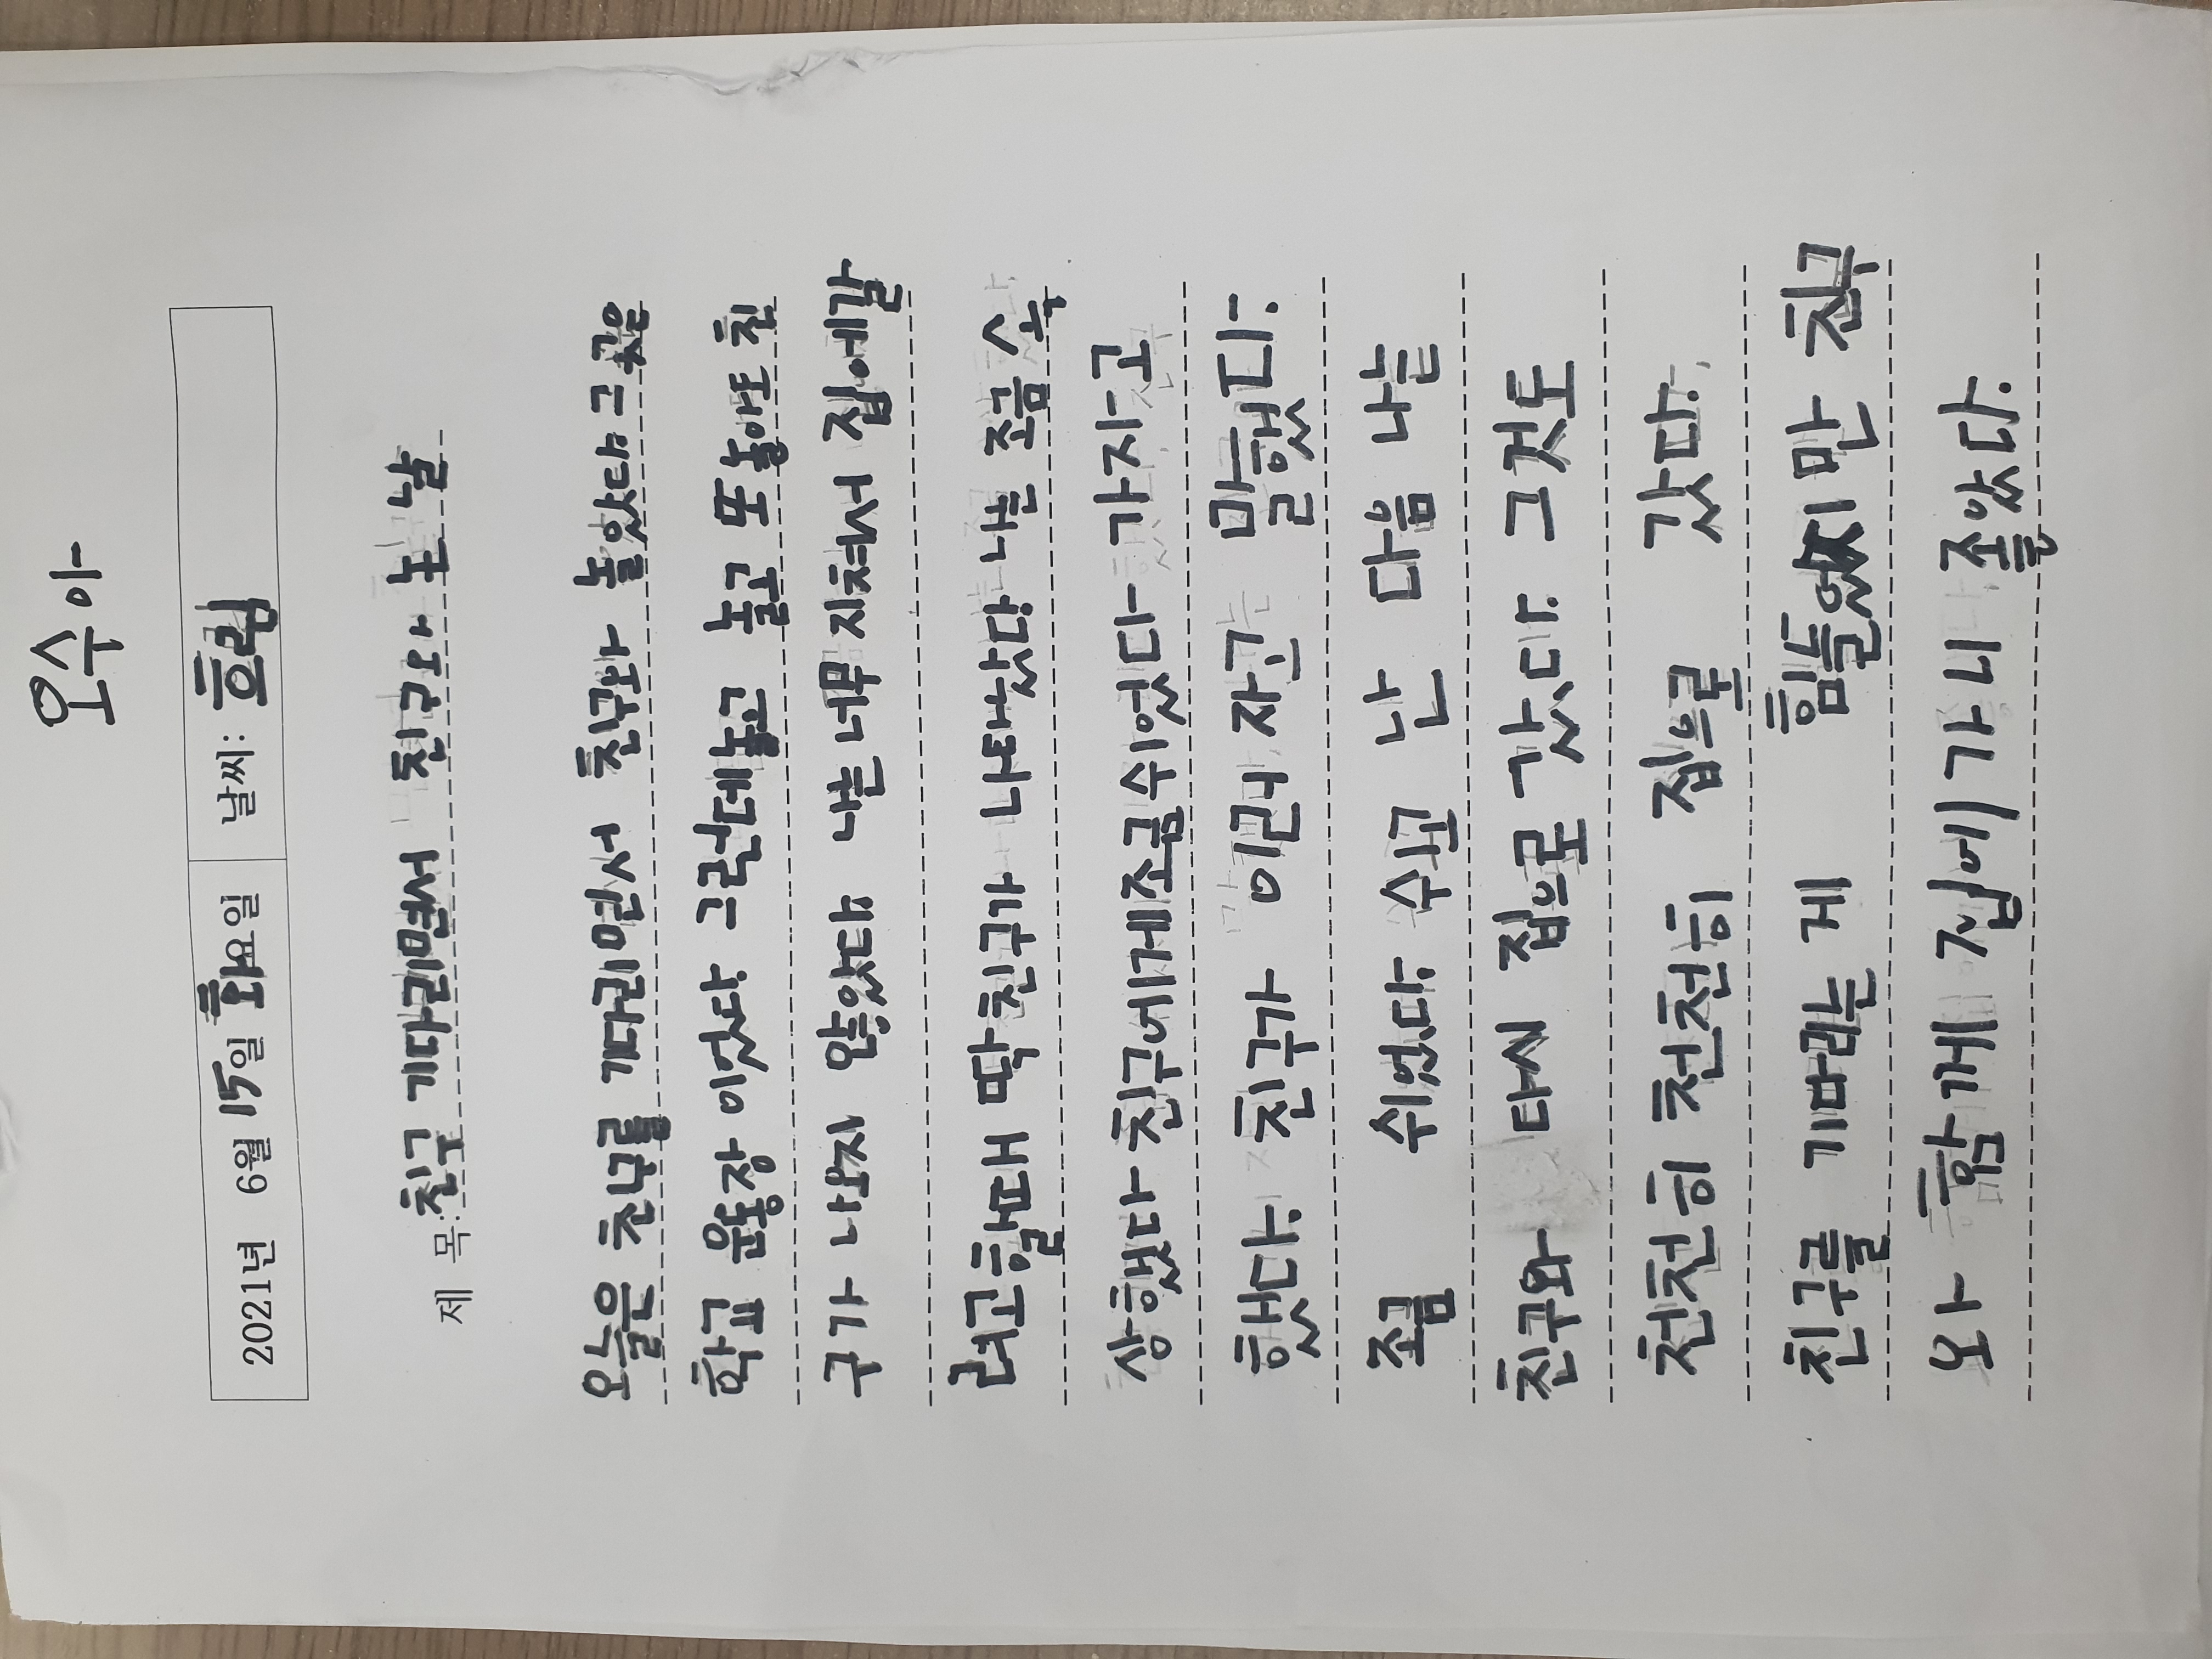 오수아
2021년 6월 15일 화요일 날씨: 흐림
제 목: 친구 기다리면서 친구와 논 날
오늘은 친구를 기다리면서 친구와 놀았다. 그 곳은
학교 운동장 이었다. 그런데 놀고 놀고 또 놀아도 친
구가 나오지 않았다. 나는 너무 지쳐서 집에 갈
려고 할때 딱 친구가 나타났다. 나는 조금 속
상했다 친구에게 조금 쉬었다 가자고
했다. 친구가 이러 자고 말했다.
조금 쉬었다. 쉬고 난 다음 나는
친구와 다시 집으로 갔다. 그것도
천천히 천천히 집으로 갔다.
친구를 기다리는 게 힘들었지만 친구
와 함께 집에 가니 좋았다.